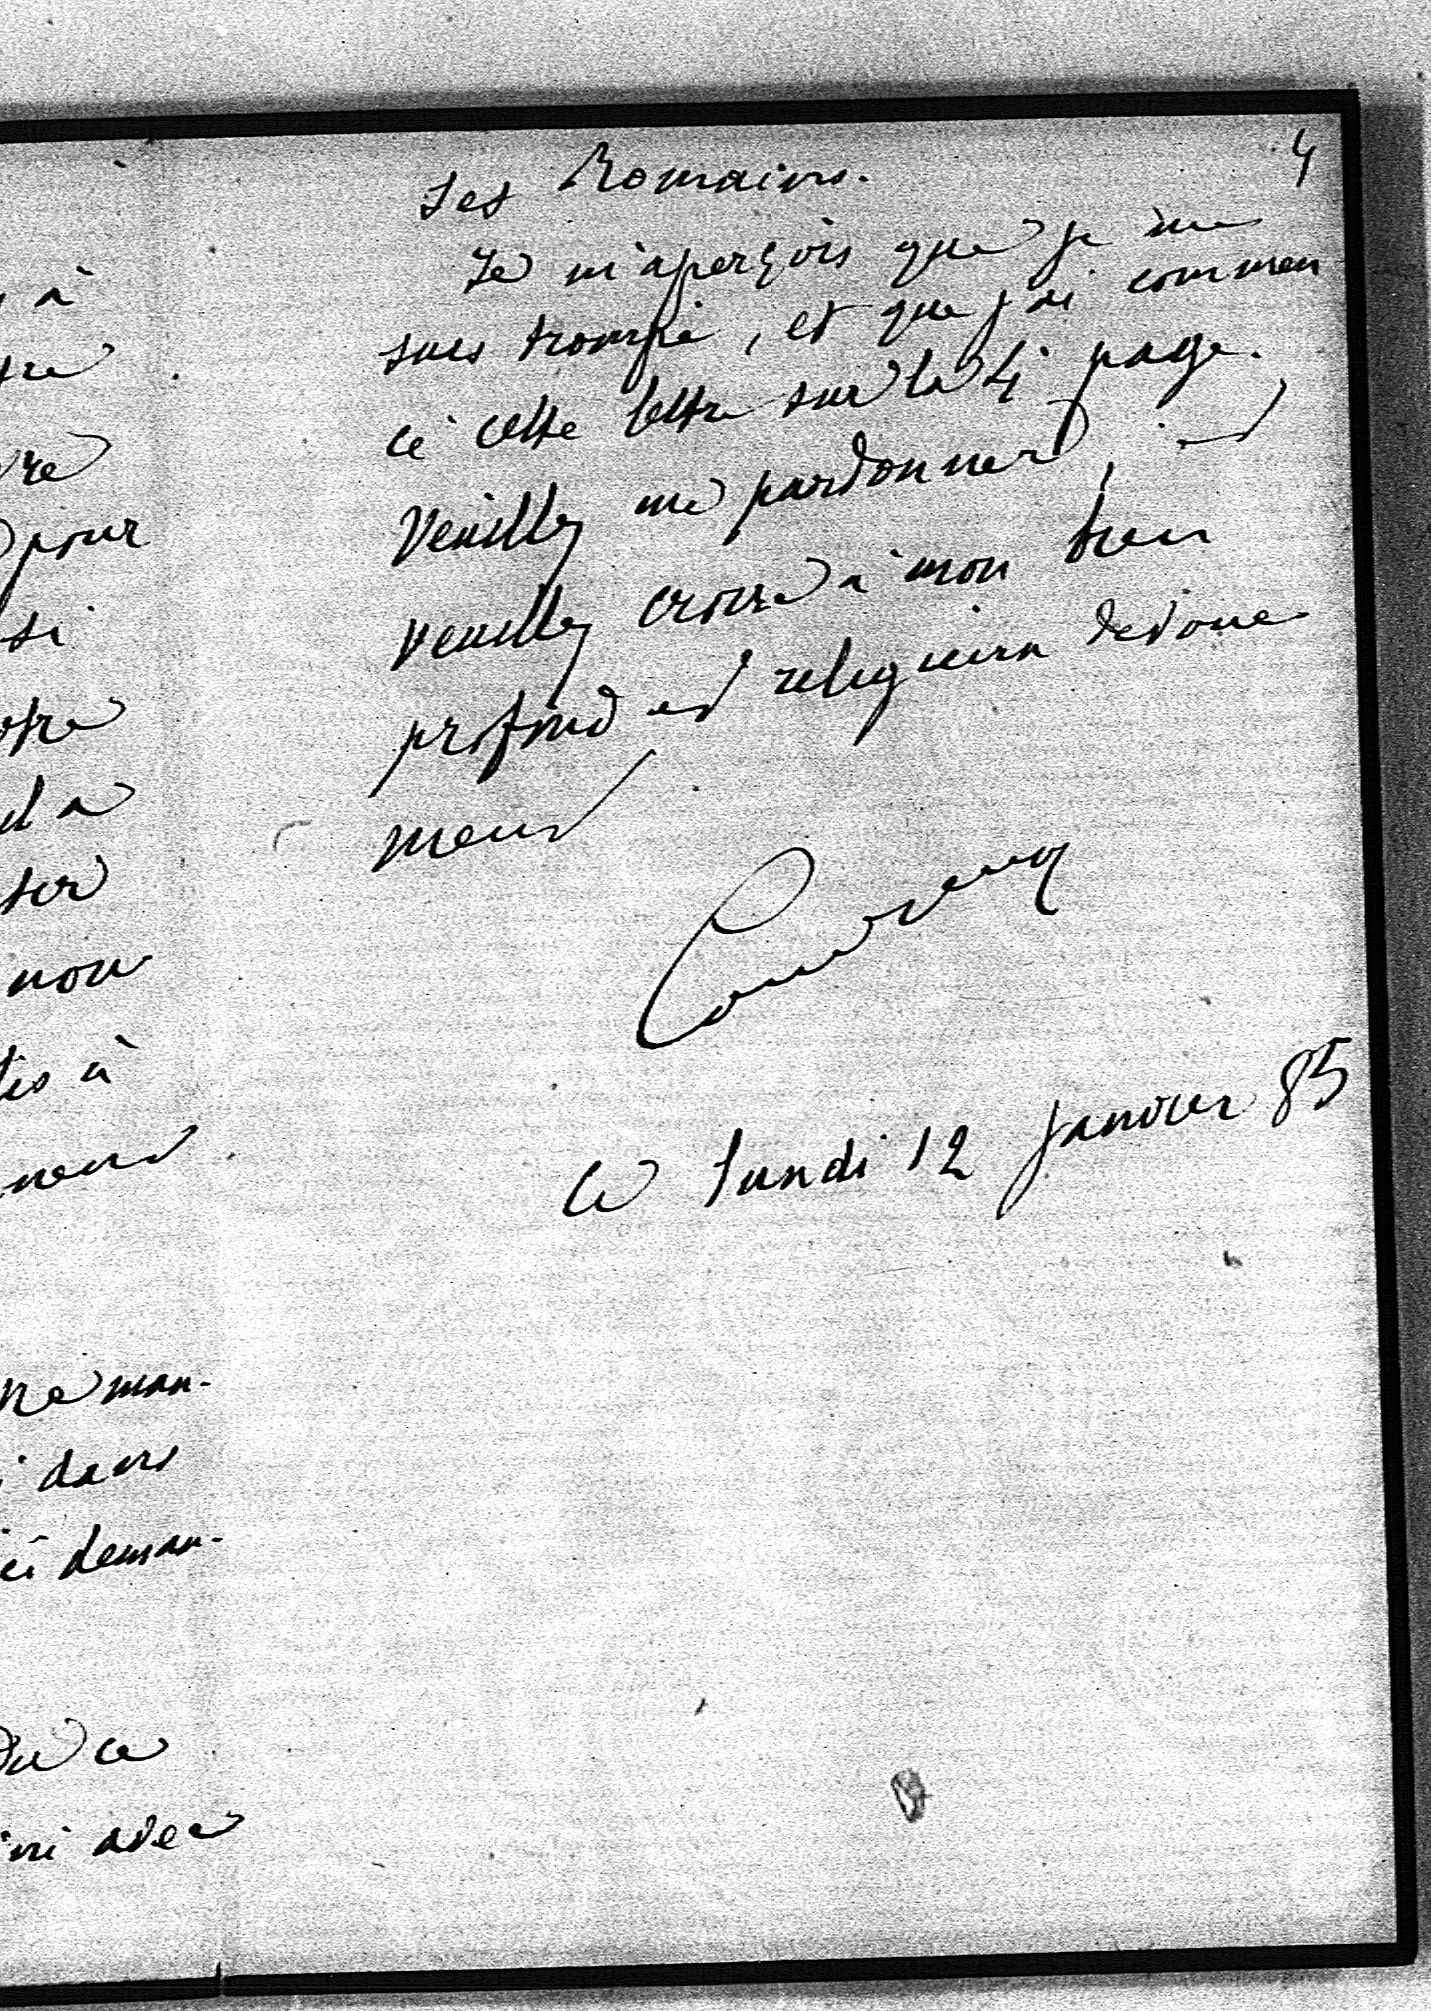 4
les Romains.
Je m'aperçois que je me
suis trompé, et que j'ai commen
cé cette lettre sur la 4e page.
Veuillez me pardonner, et
veuillez croire à mon bien
profond et religieux devoue
ment
ce lundi 12 janvier 85
à
pour
si
à
ment
man-
dans
deman-
ce
avec